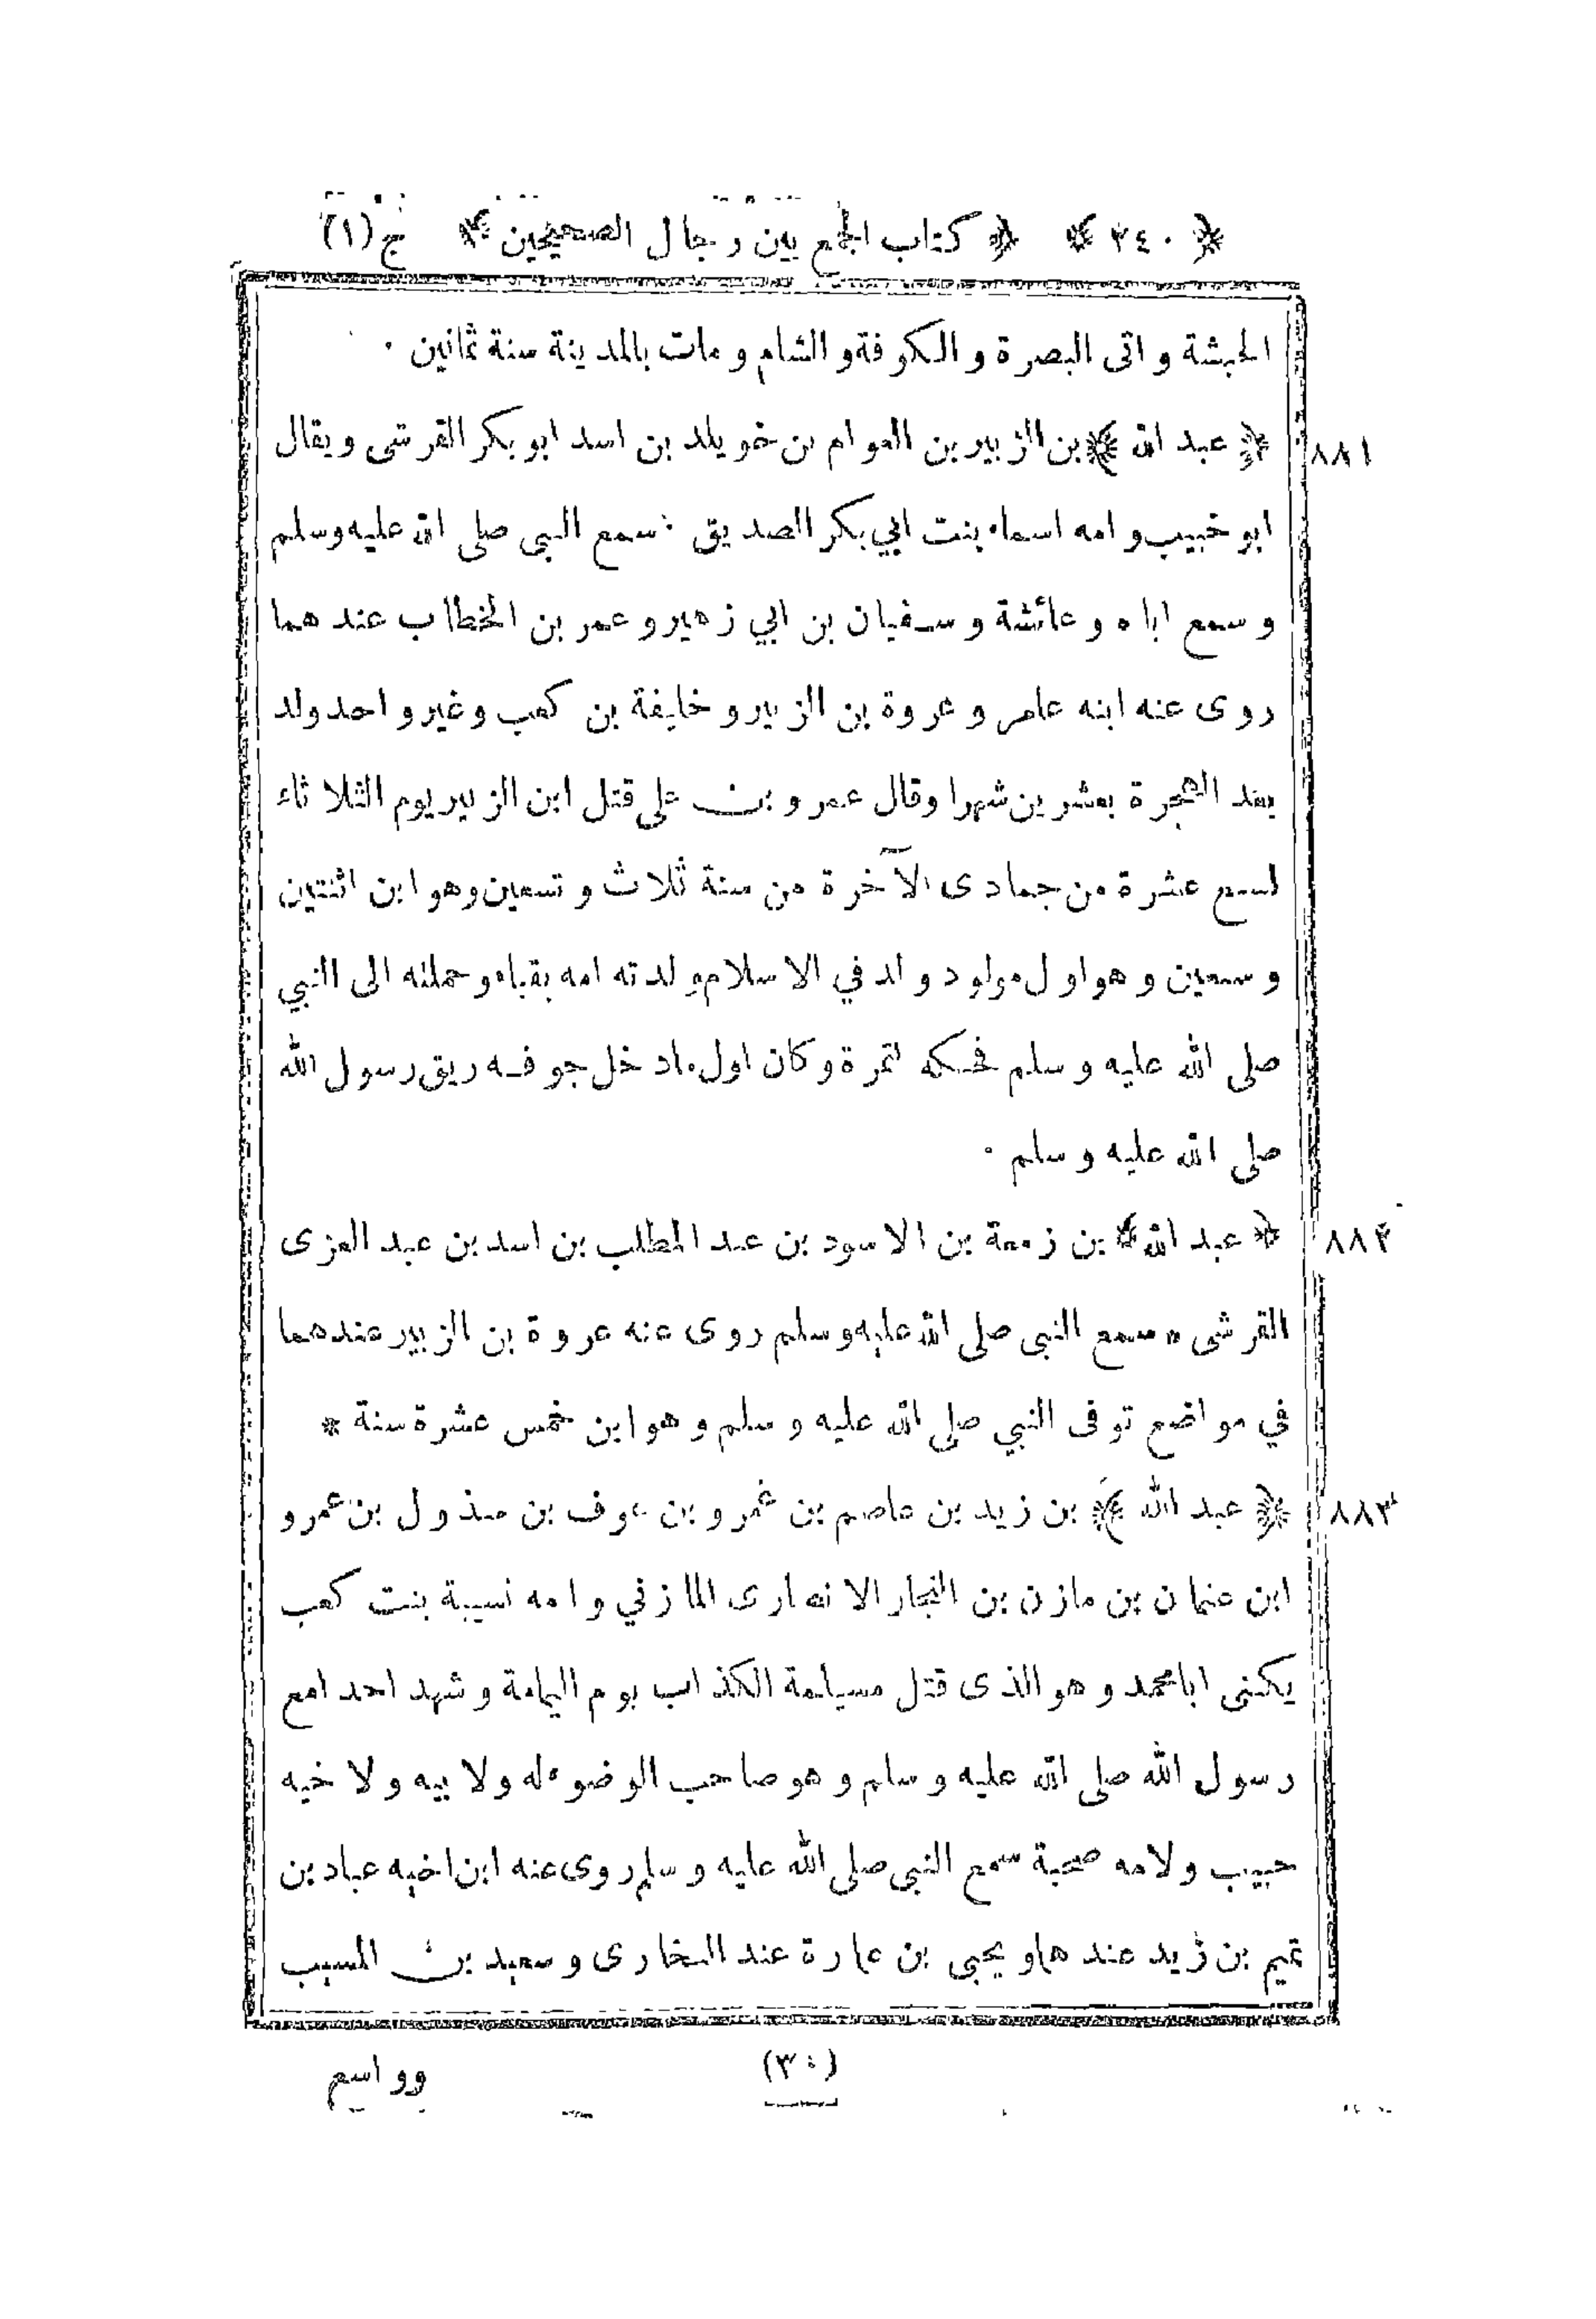 ﴿٢٤٠﴾ ﴿كتاب الجمع بين رجال الصحيحين﴾ ج (١)
الحبشة واتى البصرة والكوفة والشام ومات بالمدينة سنة ثمانين ٠
٨٨١ ﴿عبد الله﴾ بن الزبير بن العوام بن خويلد بن اسد ابو بكر القرشى ويقال
ابو خبيب وامه اسماء بنت ابي بكر الصديق سمع النبي صلى الله عليه وسلم
وسمع اباه وعائشة وسفيان بن ابي زهير وعمر بن الخطاب عندهما
روى عنه ابنه عامر وعروة بن الزبير وخليفة بن كعب وغير واحد ولد
بعد الهجرة بعشرين شهرا وقال عمرو بن على قتل ابن الزبير يوم الثلاثاء
لسبع عشرة من جمادى الآخرة من سنة ثلاث وتسعين وهو ابن اثنتين
وسبعين وهو اول مولود ولد في الاسلام ولدته امه بقباء وحملته الى النبي
صلى الله عليه وسلم فحنكه بتمرة وكان اول مادخل جوفه ريق رسول الله
صلى الله عليه وسلم ٠
٨٨٢ ﴿عبد الله﴾ بن زمعة بن الاسود بن عبد المطلب بن اسد بن عبد العزى
القرشى * سمع النبى صلى الله عليه وسلم روى عنه عروة بن الزبير عندهما
في مواضع توفى النبي صلى الله عليه وسلم وهو ابن خمس عشرة سنة *
٨٨٣ ﴿عبد الله﴾ بن زيد بن عاصم بن عمرو بن عوف بن مبذول بن عمرو
ابن عثمان بن مازن بن النجار الانصارى المازني وامه نسيبة بنت كعب
يكنى ابا محمد وهو الذى قتل مسيلمة الكذاب يوم اليمامة وشهد احدامع
رسول الله صلى الله عليه وسلم وهو صاحب الوضوء له ولابيه ولاخيه
حبيب ولامه صحبة سمع النبى صلى الله عليه وسلم روى عنه ابن اخيه عباد بن
تميم بن زيد عندهما ويحيى بن عمارة عند البخارى وسعيد بن المسيب
(٣٠)
وواسع